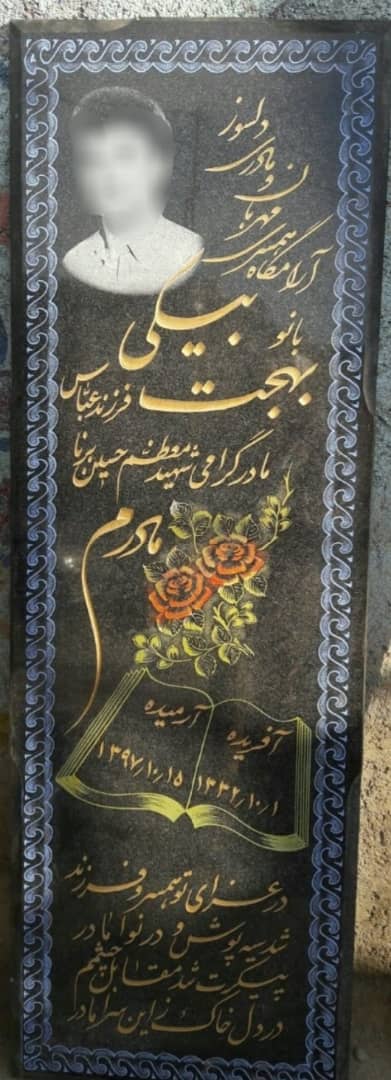 آرامگاه همسری
مهربان
و
مادری
دلسوز
بانو
بهجت بیگی
فرزند عباس
مادر گرامی شهید معظم حسین برنا
مادرم
آفریده
آرمیده
۱۳۳۲/۱۰/۱
۱۳۹۷/۱۰/۱۵
در عزای تو همسر و فرزند
شد سیه پوش و در نوا مادر
پیکرت شد مقابل چشمم
در دل خاک از این سرا مادر